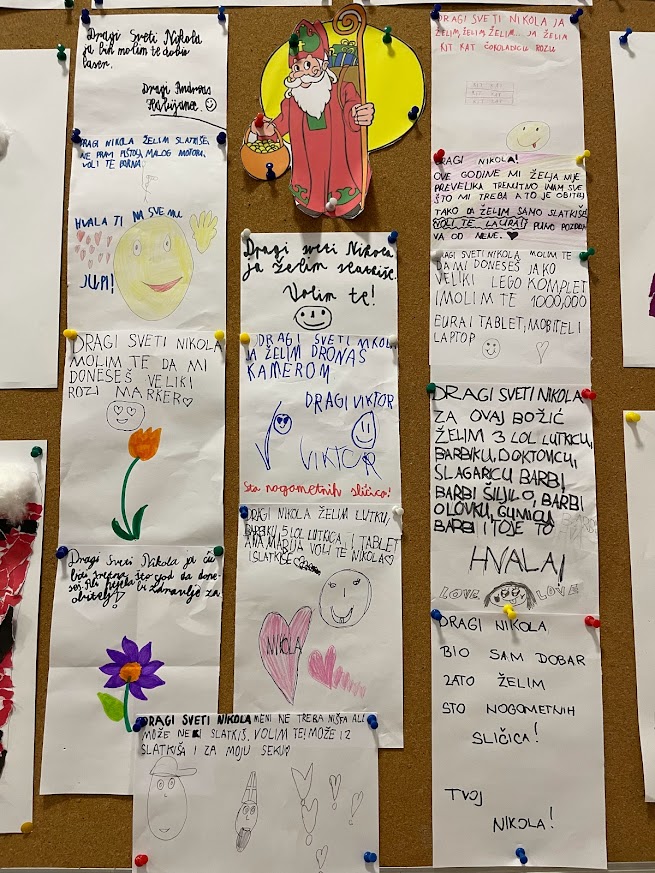 Dragi Sveti Nikola
ja bih molim te dobio
laser.
Dragi Andreas
DRAGI NIKOLA ŽELIM SLATKIŠE,
NE PRAVI PIŠTOLJ MALOG MOTORA,
VOLI TE
HVALA TI NA SVEMU
JUPI!
DRAGI SVETI NIKOLA
MOLIM TE DA MI
DONESEŠ VELIKI
ROZI MARKER
Dragi Sveti Nikola ja ću
biti sretna što god da done-
seš. želim zdravlje za
obitelj!
Dragi sveti Nikola
ja želim slatkiše.
Volim te!
DRAGI SVETI NIKOLA
JA ŽELIM DRON AŠ
KAMEROM
DRAGI VIKTOR
VIKTOR
Sto nogometnih sličica!
DRAGI NIKOLA ŽELIM LUTKU,
BARBIKU, 5 LOL LUTKICA, I TABLET
ANA MARIJA VOLI TE NIKOLA
I SLATKIŠE
NIKOLA
DRAGI SVETI NIKOLA MENI NE TREBA NIŠTA ALI
MOŽE NEKI SLATKIŠ. VOLIM TE! MOŽE I 2
SLATKIŠA I ZA MOJU SEKU
DRAGI SVETI NIKOLA JA
ŽELIM, ŽELIM, ŽELIM... JA ŽELIM
KIT KAT ČOKOLADICU ROZU
KIT KAT
KIT KAT
KIT KAT
DRAGI NIKOLA!
OVE GODINE MI ŽELJA NIJE
PREVELIKA TRENUTNO IMAM SVE
ŠTO MI TREBA A TO JE OBITELJ
TAKO DA ŽELIM SAMO SLATKIŠE
VOLI TE LAURA! PUNO POZDRA
VA OD MENE.
DRAGI SVETI NIKOLA MOLIM TE
DA MI DONESEŠ JAKO
VELIKI LEGO KOMPLET
I MOLIM TE 1000,000
EURA I TABLET, MOBITEL I
LAPTOP
DRAGI SVETI NIKOLA
ZA OVAJ BOŽIĆ
ŽELIM 3 LOL LUTKICU,
BARBIKU, DOKTORICU,
SLAGARICU BARBI,
BARBI ŠILJILO, BARBI
OLOVKU, GUMICU
BARBI I TO JE TO
HVALA!
LOVE LOVE
DRAGI NIKOLA
BIO SAM DOBAR
ZATO ŽELIM
STO NOGOMETNIH
SLIČICA!
TVOJ
NIKOLA!